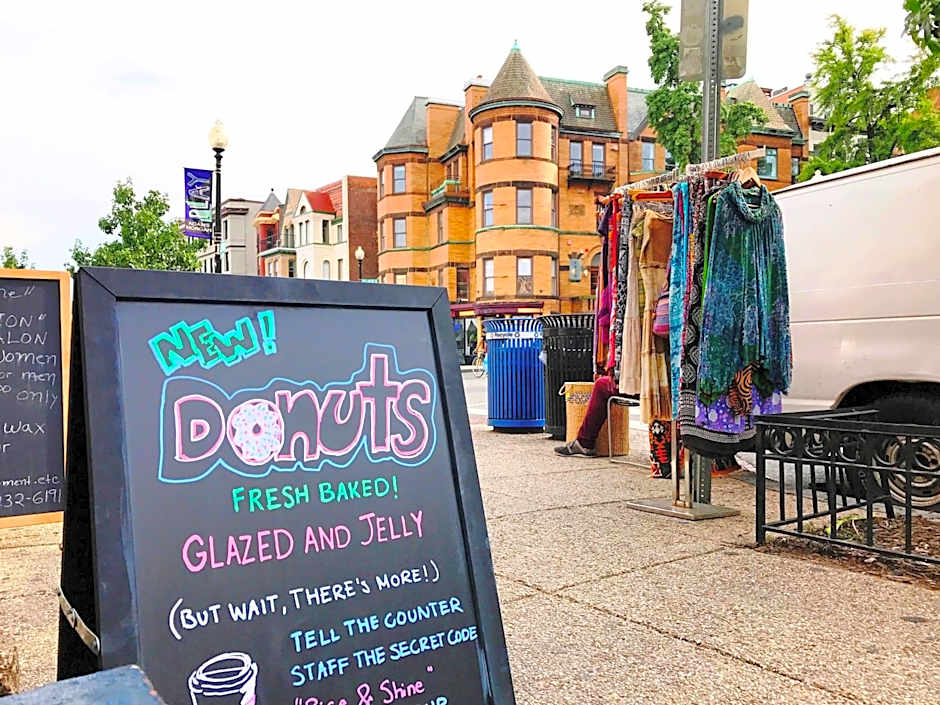 NEW!
DONUTS
FRESH BAKED!
GLAZED AND JELLY
(BUT WAIT, THERE'S MORE!)
TELL THE COUNTER
STAFF THE SECRET CODE
"Rise & Shine"
ME"
ALON
Women
or men
only
WAX
ment.etc
232-6191
PLAY
ADAMS
MORGAN
Recycle